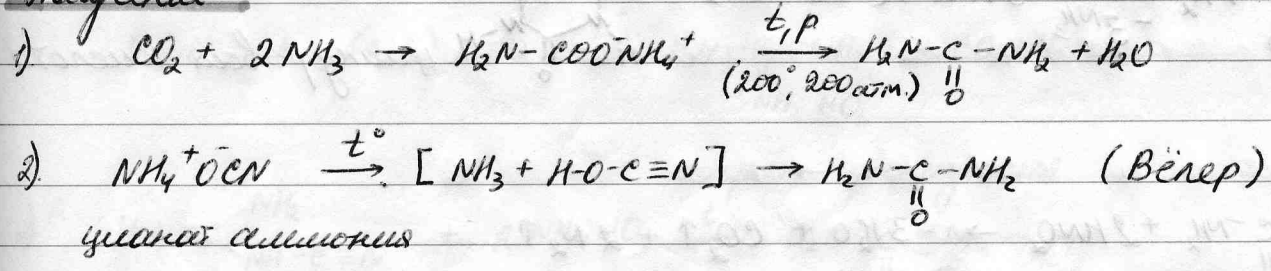 1). CO₂ + 2NH₃ → H₂N-COO⁻NH₄⁺ t, p (200°, 200 атм.) → H₂N-C(=O)-NH₂ + H₂O
2). NH₄⁺O⁻CN t° → [NH₃ + H-O-C≡N] → H₂N-C(=O)-NH₂ (Вёлер)
цианат аммония